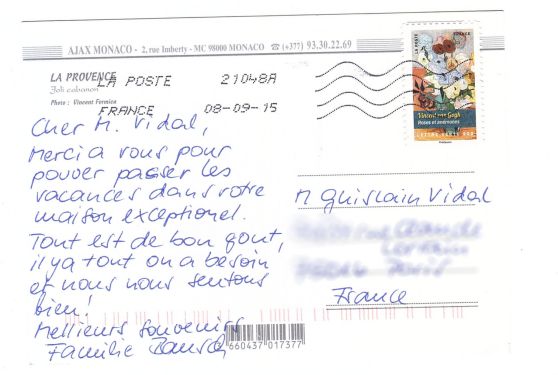 AJAX MONACO - 2, rue Imberty - MC 98000 MONACO ☎ (+377) 93.30.22.69
LA PROVENCE
Joli cabanon
Photo : Vincent Formica
LA POSTE 21048A
FRANCE 08-09-15
LA POSTE FRANCE
Vincent van Gogh
Roses et anémones
LETTRE VERTE 20g
Cher M. Vidal,
Merci a vous pour
pouver passer les
vacances dans votre
maison exceptionel.
Tout est de bon gout,
il y a tout on a besoin
et nous nous sentons
bien!
Mellieurs souvenirs
Familie
M Ghislain Vidal
France
3 660437 017377